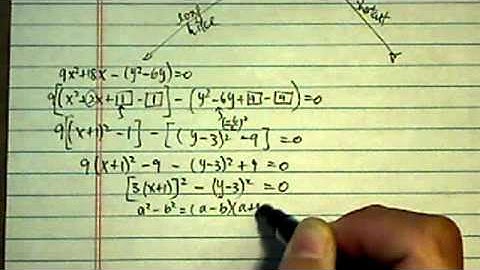 long
shortcut
9x²+18x-(y²-6y)=0
9[x²+2x+1-1]-(y²-6y+9-9)=0
(-6/2)²
9[(x+1)²-1]-[(y-3)²-9]=0
9(x+1)²-9-(y-3)²+9=0
[3(x+1)]²-(y-3)²=0
a²-b²=(a-b)(a+